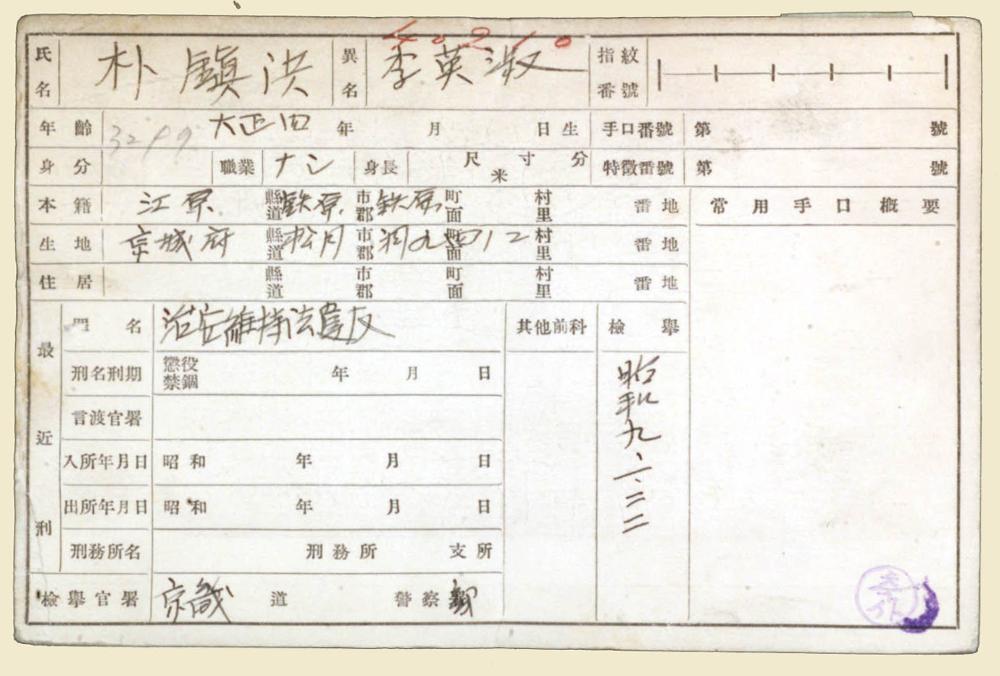 40210
氏名 朴鎭洪 異名 李英淑 指紋番號
年齡 3219 大正四 年 月 日生 手口番號 第 號
身分 職業 ナシ 身長 尺寸分 米 特徵番號 第 號
本籍 江原 縣道 鉄原 市郡 鉄原 町面 村里 番地 常用手口概要
生地 京城府 縣道 松月 市郡 洞九四ノ二 町面 村里 番地
住居 縣道 市郡 町面 村里 番地
最近刑 罪名 治安維持法違反 其他前科 檢擧
刑名刑期 懲役 禁錮 年 月 日 昭和九、六、二二
言渡官署
入所年月日 昭和 年 月 日
出所年月日 昭和 年 月 日
刑務所名 刑務所 支所
檢擧官署 京畿 道 警察部